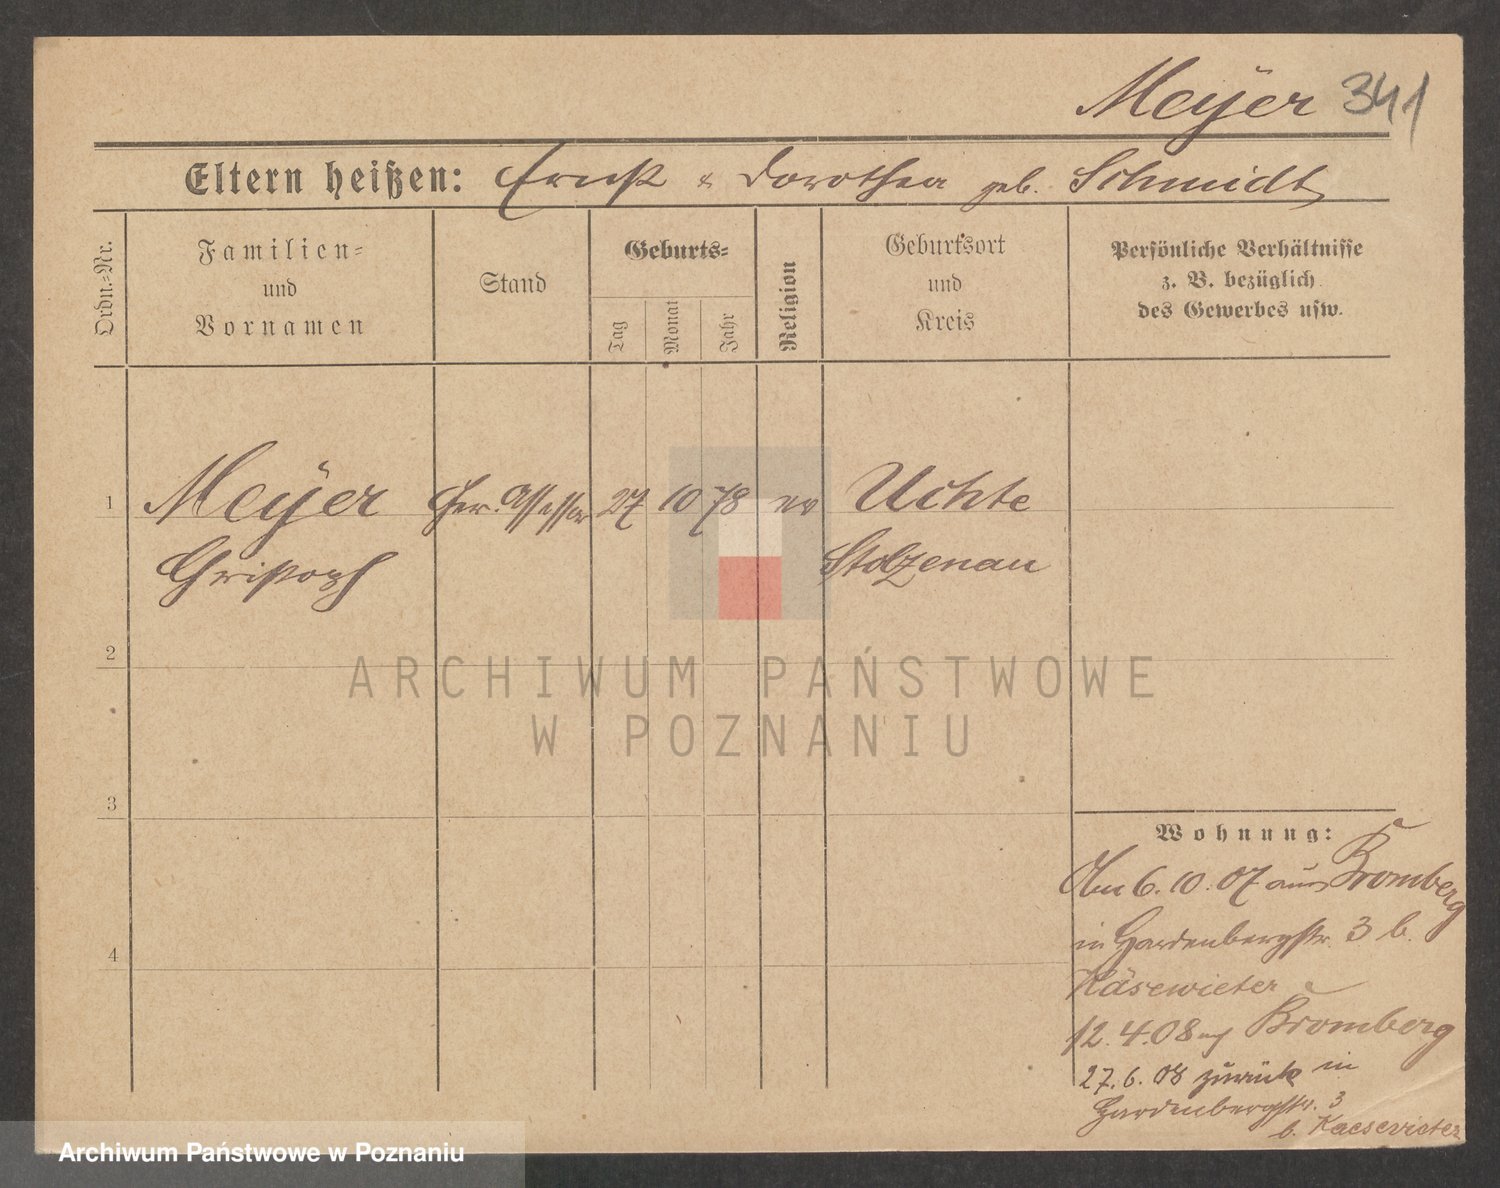 Meÿer 341
Eltern heißen: Ernst & Dorothea geb. Schmidt
Ordn.-Nr.
Familien-
und
Vornamen
Stand
Geburts-
Tag
Monat
Jahr
Religion
Geburtsort
und
Kreis
Persönliche Verhältnisse
z. B. bezüglich
des Gewerbes usw.
1 Meÿer Ger. Assessor 27 10 78 ev Uchte
Christoph Stolzenau
2
ARCHIWUM PAŃSTWOWE
W POZNANIU
3
Wohnung:
Am 6. 10. 07 aus Bromberg
in Hardenbergstr. 3 b.
Käsewieter
4
12. 4. 08 n/ Bromberg
27. 6. 08 zurück in
Hardenbergstr. 3
b. Kaesevieter
Archiwum Państwowe w Poznaniu